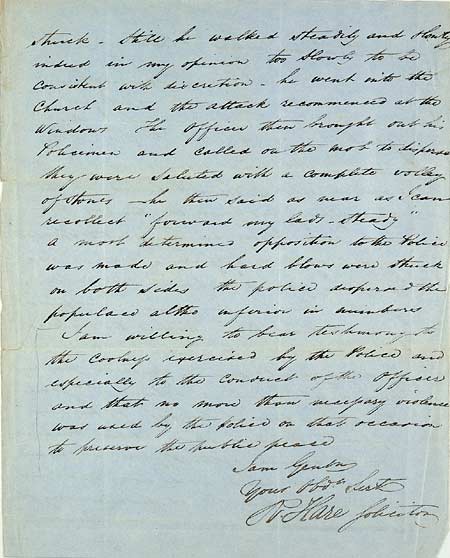 struck - Still he walked steadily and slowly
indeed in my opinion too slowly to be
consistent with discretion - he went into the
Church and the attack recommenced at the
Windows The Officer then brought out his
Policemen and called on the mob to disperse
they were saluted with a complete volley
of stones - he then said as near as I can
recollect "forward my lads - steady"
A most determined opposition to the Police
was made and hard blows were struck
on both sides the police dispersed the
populace altho inferior in numbers
I am willing to bear testimony to
the coolness exercised by the Police and
especially to the conduct of the Officer
and that no more than necessary violence
was used by the police on that occasion
to preserve the public peace
I am Gentn
Your Obdt Servt
R Hare Solicitor